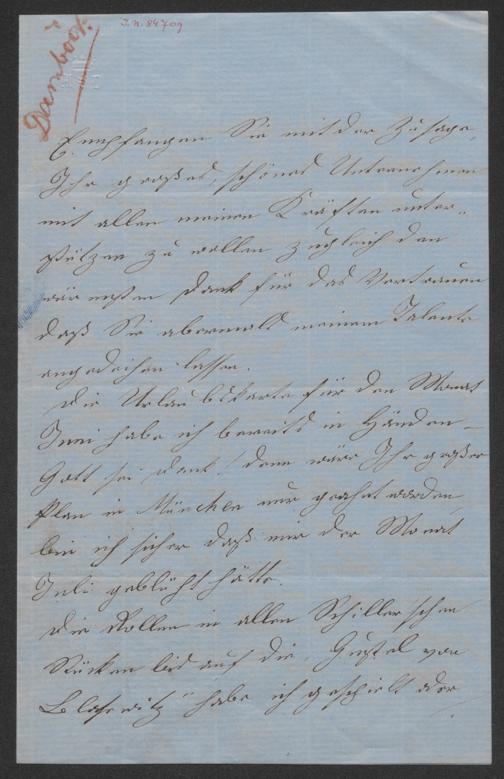 Damböck.
J.N. 84709
Empfangen Sie mit der Zusage,
Ihr großes, schönes Unternehmen
mit allen meinen Kräften unter-
stützen zu wollen zugleich den
wärmsten Dank für das Vertrauen
daß Sie abermals meinem Talente
angedeihen lassen.
Die Urlaubskarte für den Monat
Juni habe ich bereits in Händen –
Gott sei Dank! denn wäre Ihr großer
Plan in München nur geahnt worden,
bin ich sicher daß mir der Monat
Juli geblüht hätte.
Die Rollen in allen Schiller'schen
Stücken bis auf die "Gustel von
Blasewitz" habe ich gespielt oder